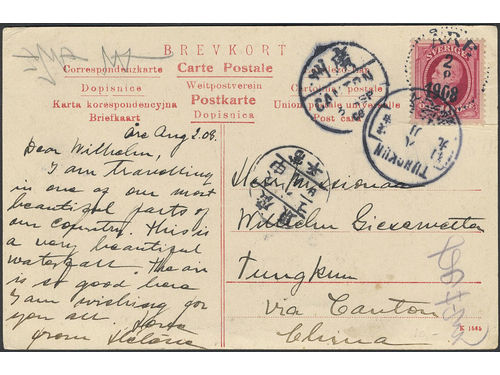 BREVKORT
Correspondenzkarte
Carte Postale
Dopisnice
Weltpostverein
Cartolina postale
Karta korespondencyjna
Postkarte
Union postale universelle
Briefkaart
Dopisnica
Post card
SVERIGE
ÅRE
2
8
1908
廣州
CANTON
SEP
TUNGKUN
Åre Aug 2. 08.
Dear Wilhelm,
I am travelling
in one of our most
beautiful parts of
our country. This is
a very beautiful
waterfall. The air
is so good here
I am wishing for
you all. Love
from Helene
Herr Missionar
Wilhelm
Tungkun
via Canton
China